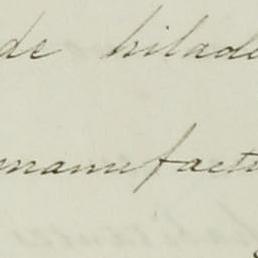 de hilado
manufactu